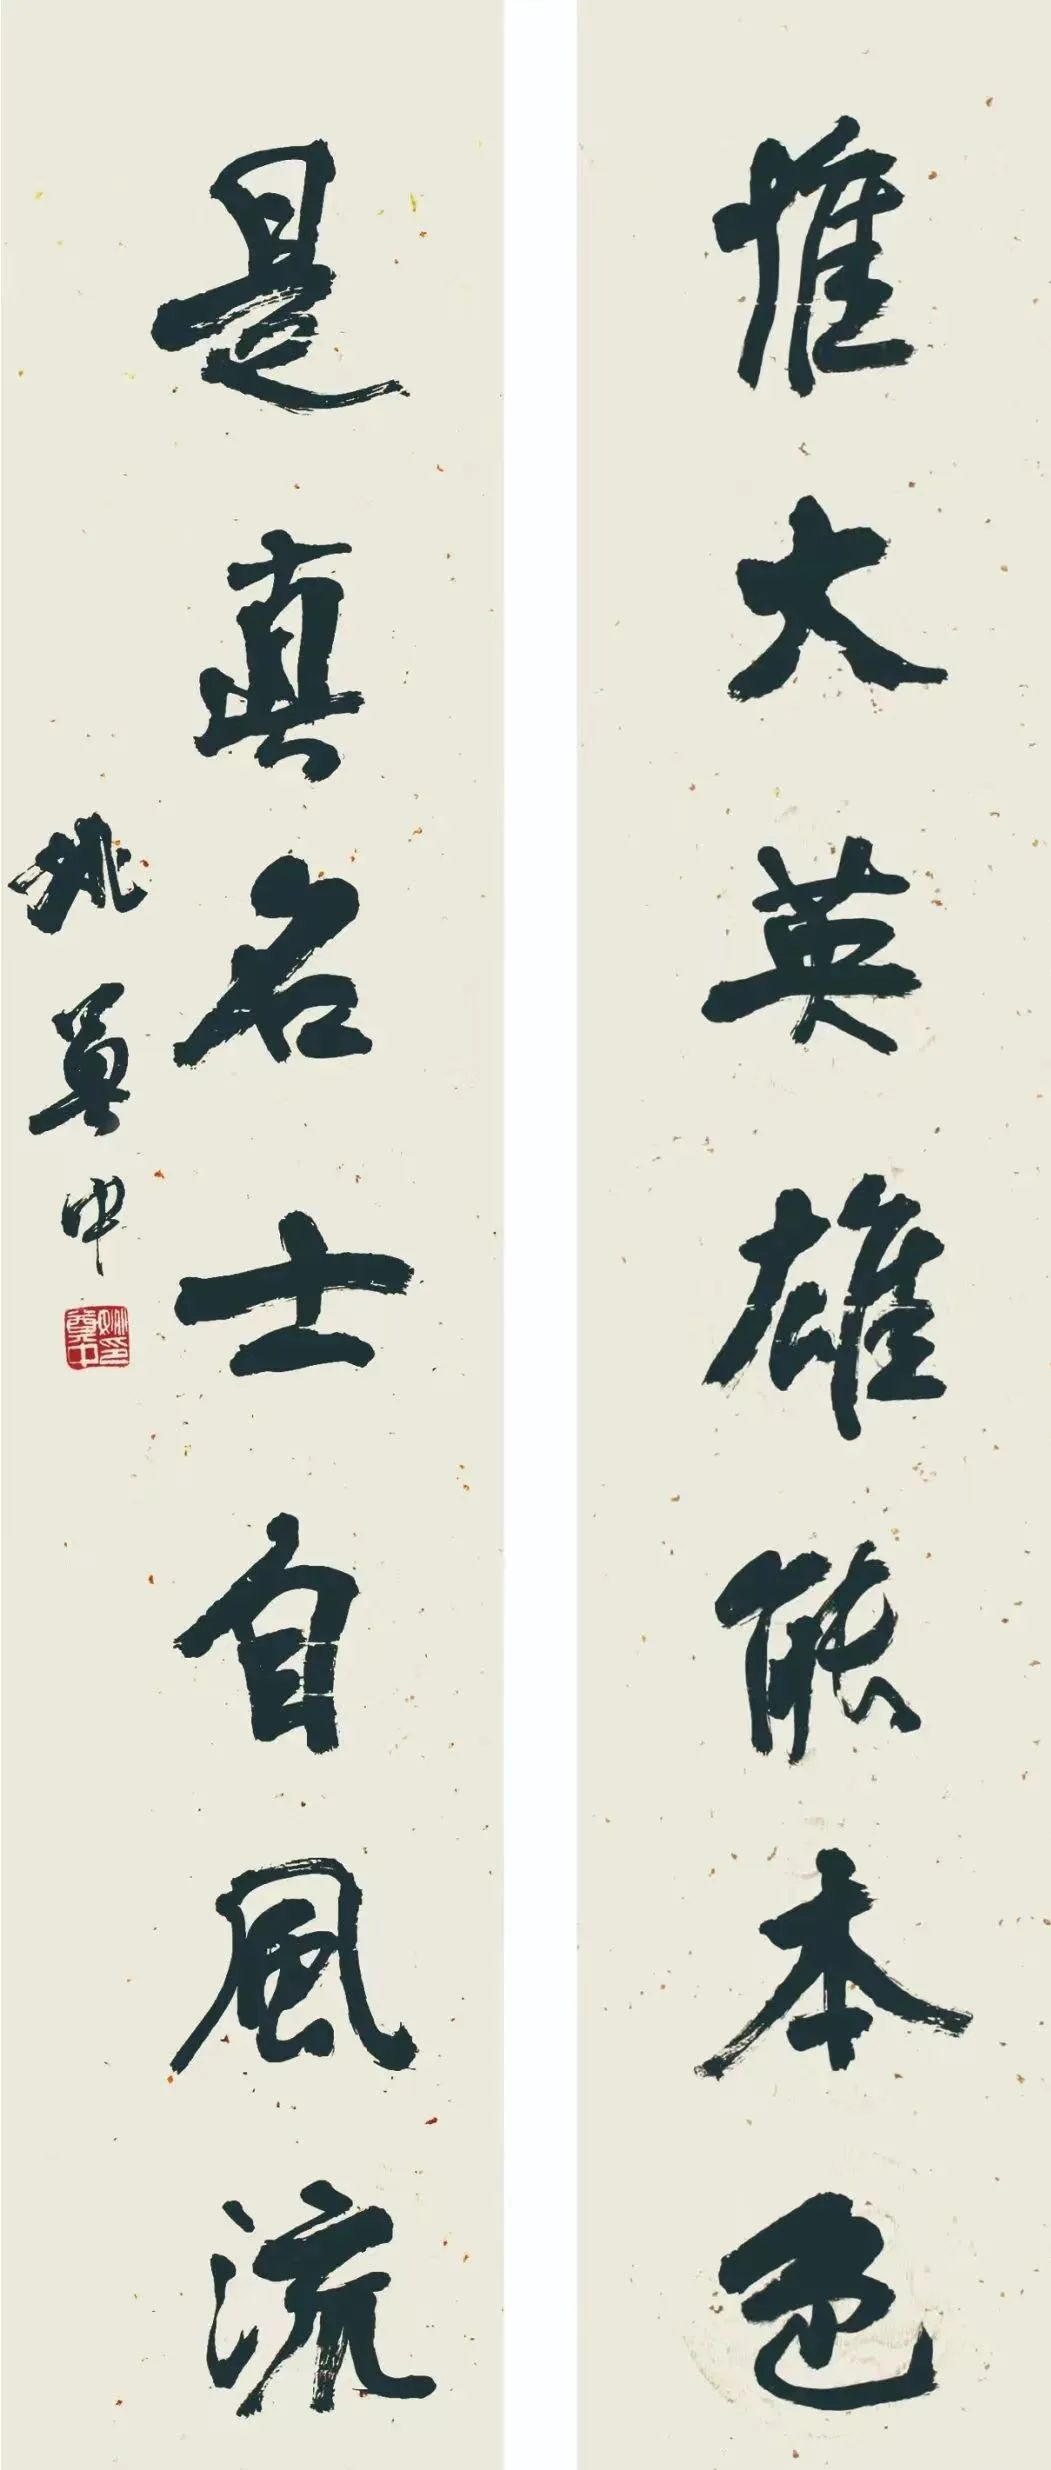 惟大英雄能本色
是真名士自風流
姚奠中
姚奠中印